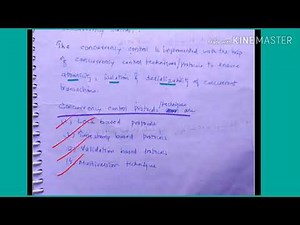 KINEMASTER
The concurrency control is implemented with the help
of concurrency control techniques/protocols to ensure
atomicity, isolation & serializability of concurrent
transactions.
Concurrency control protocols/
(1) Lock based protocols
based protocols
(3) Validation based protocols
(4) Multiversion technique